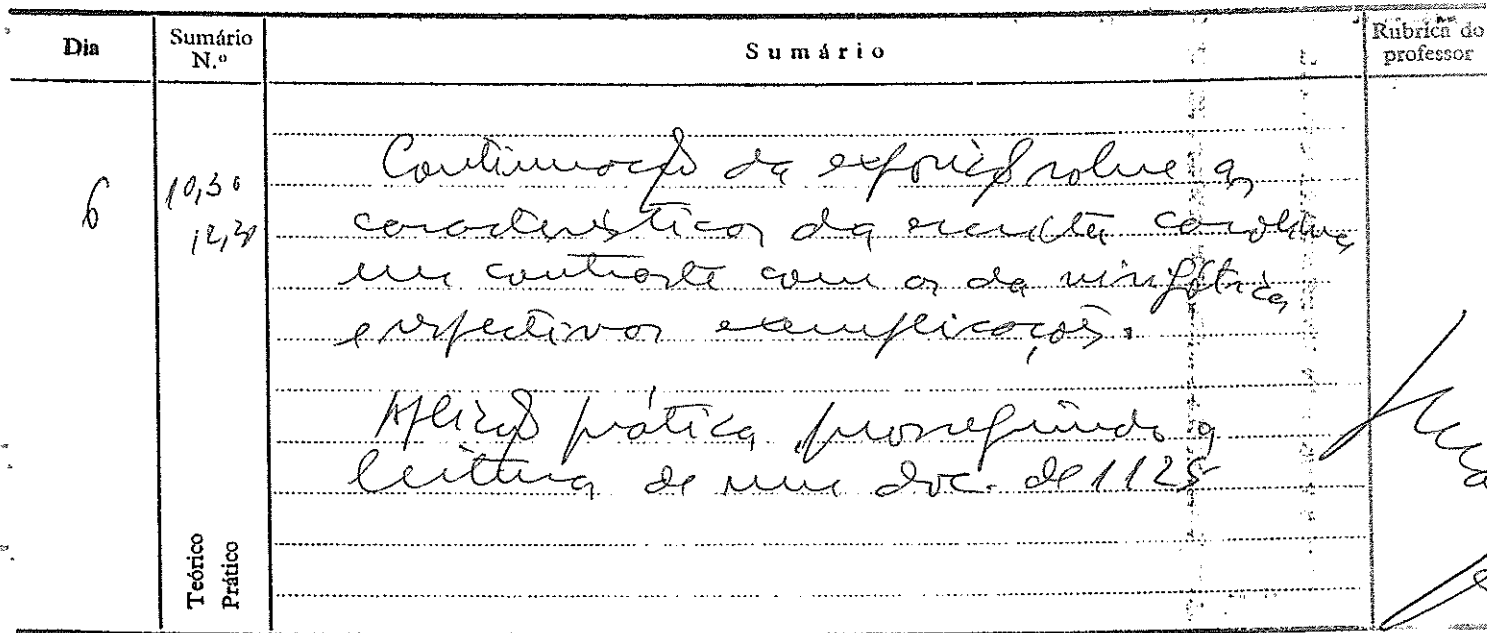 Dia
Sumário N.º
Sumário
Rubrica do professor
6
10,30
12,30
Continuação da exposição sobre as
características da escrita carolina
em contraste com as da visigótica,
e respectivas exemplificações.
Aplicação prática, prosseguindo a
leitura de um doc. de 1125
Teórico
Prático